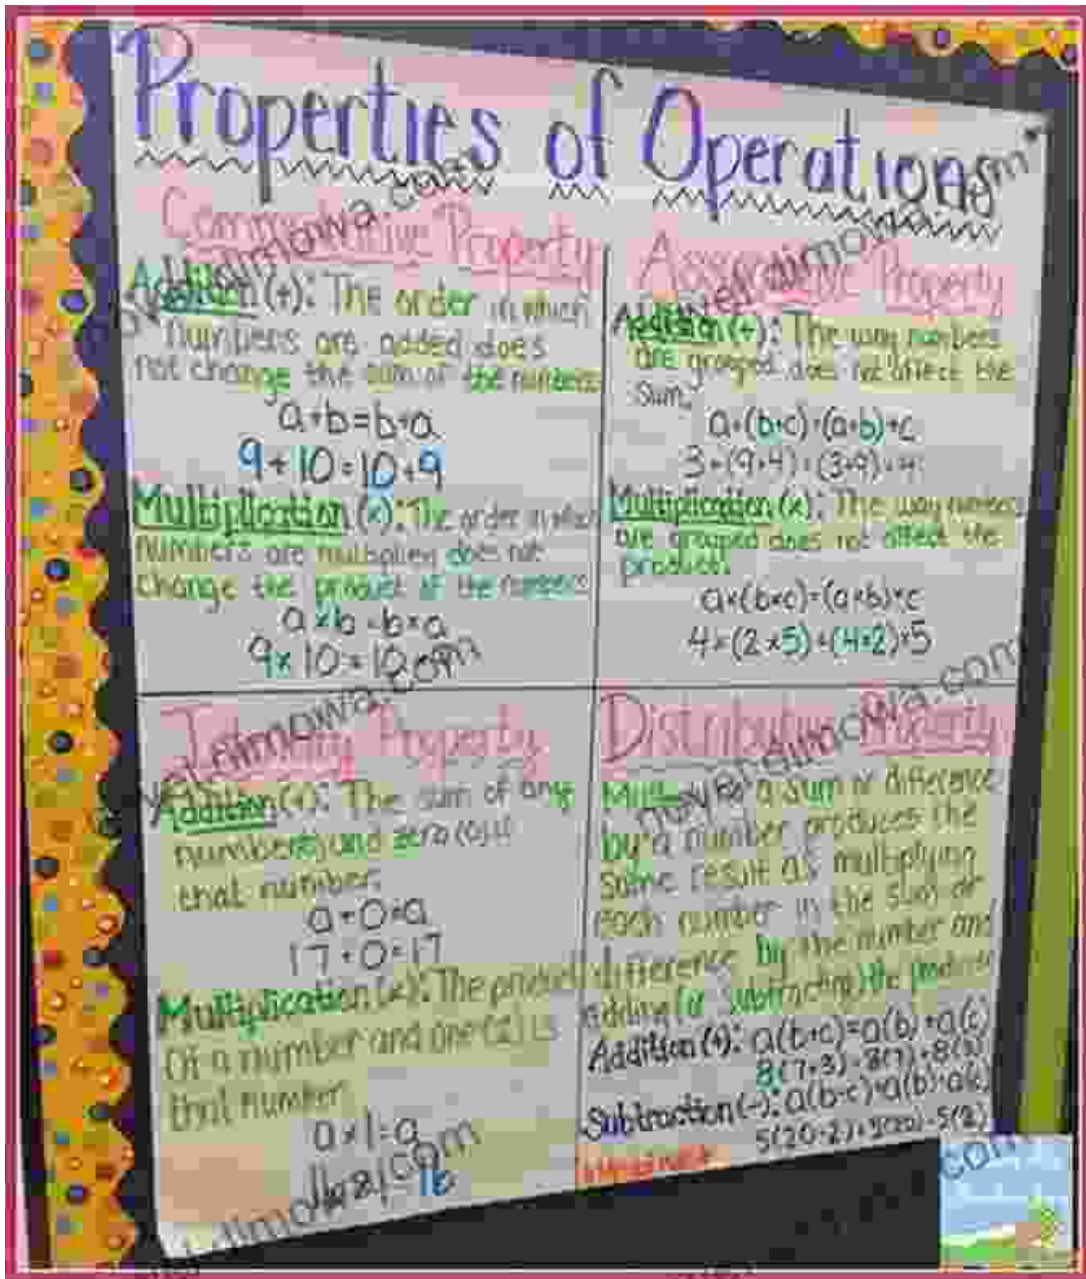 Properties of Operations
Commutative Property
Addition (+): The order in which
numbers are added does
not change the sum of the numbers
a+b=b+a
9+10=10+9
Multiplication (x): The order in which
numbers are multiplied does not
change the product of the numbers
a×b=b×a
9×10=10
Associative Property
Addition (+): The way numbers
are grouped does not affect the
sum.
a+(b+c)=(a+b)+c
3+(9+4)=(3+9)+4
Multiplication (x): The way numbers
are grouped does not affect the
product.
a×(b×c)=(a×b)×c
4×(2×5)=(4×2)×5
Identity Property
Addition (+): The sum of any
number and zero (0) is
that number.
a+0=a
17+0=17
Multiplication (x): The product
of a number and one (1) is
that number.
a×1=a
16
Distributive Property
a sum or difference
by a number produces the
same result as multiplying
each number in the sum or
difference by the number and
adding (or subtracting) the products
Addition (+): a(b+c)=a(b)+a(c)
8(7+3)=8(7)+8(3)
Subtraction (-): a(b-c)=a(b)-a(c)
5(20-2)=5(20)-5(2)